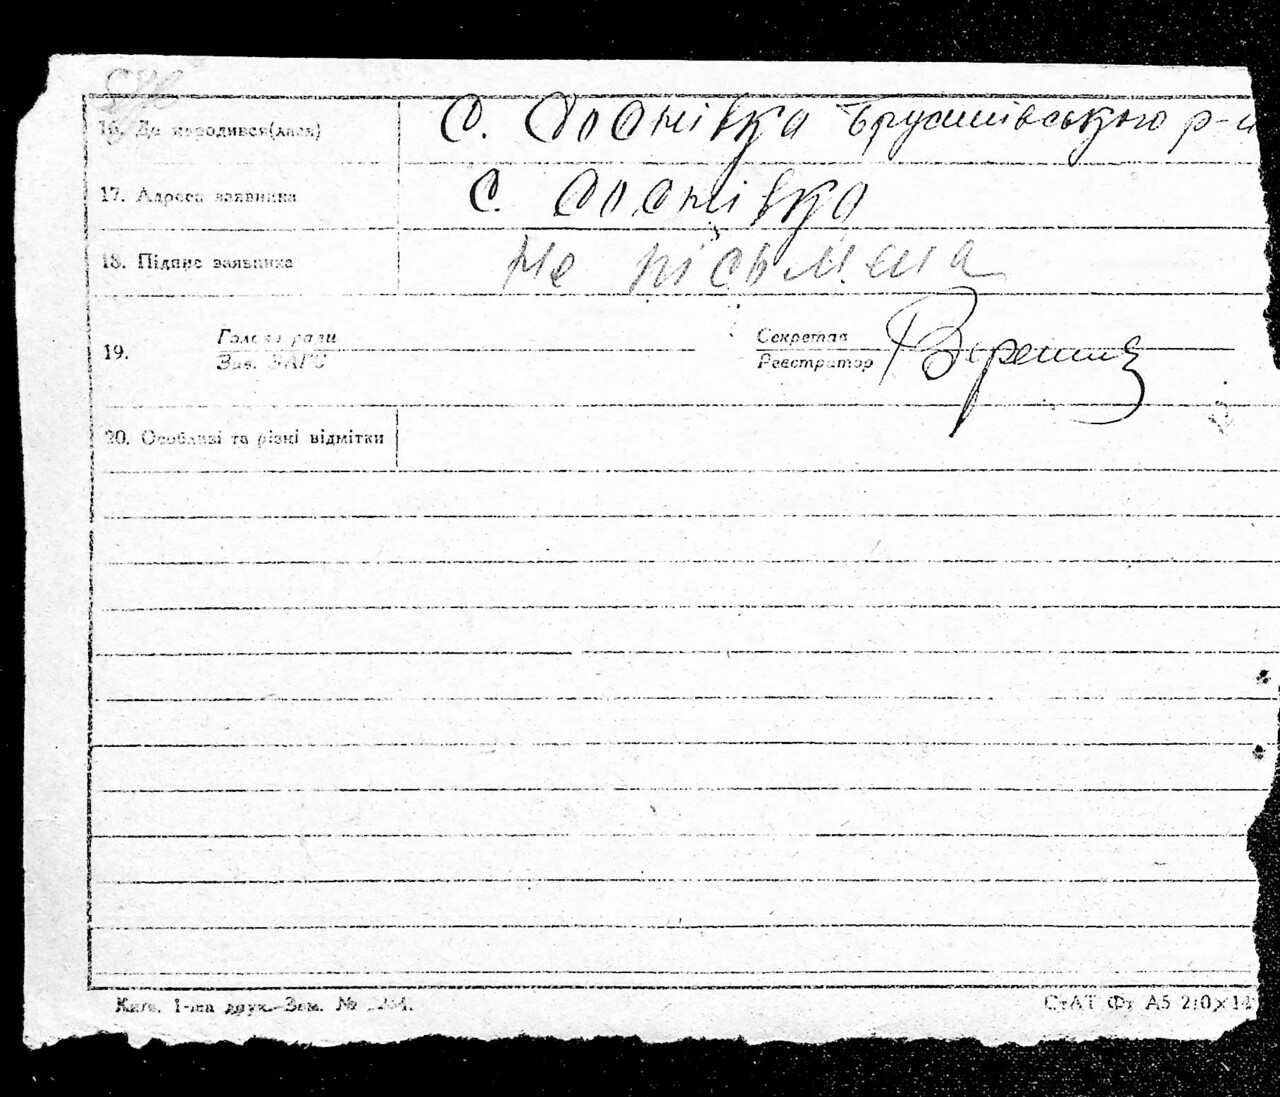 16. Де народився(лася) С. Соснівка Брусилівського р-н
17. Адреса заявника С. Соснівка
18. Підпис заявника Не пісьмена
19. Голова ради Секретар
Зав. ЗАГС Реєстратор
20. Особливі та різні відмітки
Київ. 1-ша друк.-Зам. №
СтАТ Фт А5 210×14